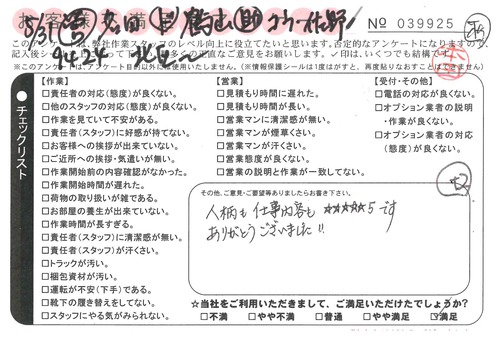 No 039925
このアンケートは、弊社作業スタッフのレベル向上に役立てたいと思います。否定的なアンケートになりますので
※このアンケートは、アンケート目的以外には使用いたしません。(※情報保護シールは1度がすと、再度貼りなおすことはできません)
チェックリスト
【作業】
□責任者の対応(態度)が良くない。
□他のスタッフの対応(態度)が良くない。
□作業を見ていて不安がある。
□責任者(スタッフ)に好感が持てない。
□お客様への挨拶が出来ていない。
□ご近所への挨拶・気遣いが無い。
□作業開始前の内容確認がなかった。
□作業開始時間が遅れた。
□荷物の取り扱いが雑である。
□お部屋の養生が出来ていない。
□作業時間が長すぎる。
□責任者(スタッフ)に清潔感が無い。
□責任者(スタッフ)が汗くさい。
□トラックが汚い。
□梱包資材が汚い。
□運転が不安(下手)である。
□靴下の履き替えをしてない。
□スタッフにやる気がみられない。
【営業】
□見積もり時間に遅れた。
□見積もり時間が長い。
□営業マンに清潔感が無い。
□営業マンが煙草くさい。
□営業マンが汗くさい。
□営業態度が良くない。
□営業の説明と作業が一致してない。
【受付・その他】
□電話の対応が良くない。
□オプション業者の説明
・作業が良くない。
□オプション業者の対応
(態度)が良くない。
その他、ご意見・ご要望等ありましたらお書き下さい。
人柄も仕事内容も ★★★★★5です
ありがとうございました!!
☆当社をご利用いただきまして、ご満足いただけたでしょうか?
□不満 □やや不満 □普通 □やや満足 ☑満足